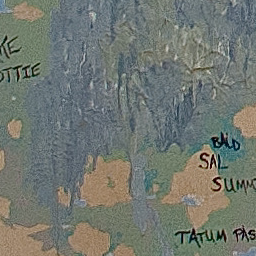 KE
OTTIE
BALD
SAL
SUMM
TATUM PAS